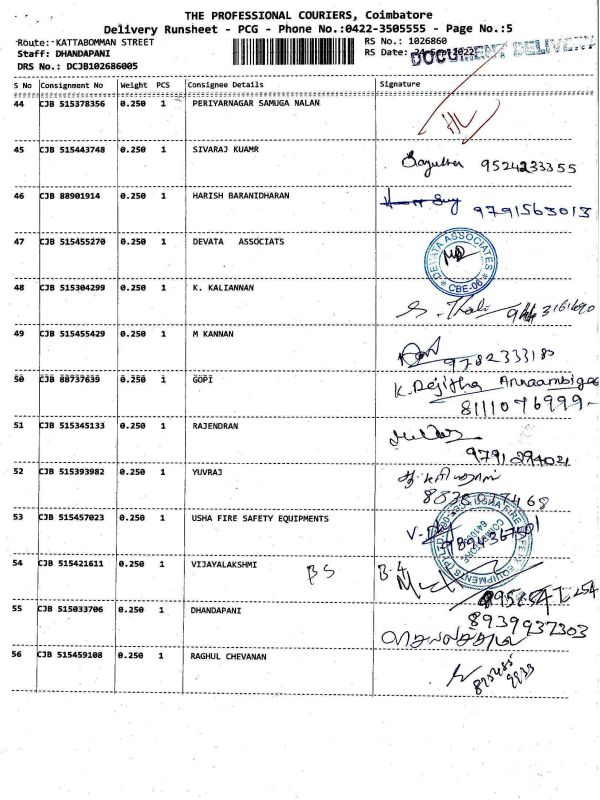 THE PROFESSIONAL COURIERS, Coimbatore
Delivery Runsheet - PCG - Phone No.:0422-3505555 - Page No.:5
Route: KATTABOMMAN STREET RS No.: 1026860
Staff: DHANDAPANI RS Date: 24-Sept-2022 DOCUMENT DELIVERY
DRS No.: DCJB102686005
S No Consignment No Weight PCS Consignee Details Signature
44 CJB 515378356 0.250 1 PERIYARNAGAR SAMUGA NALAN
45 CJB 515443748 0.250 1 SIVARAJ KUAMR
9524233355
46 CJB 88901914 0.250 1 HARISH BARANIDHARAN
9791563013
47 CJB 515455270 0.250 1 DEVATA ASSOCIATS
DEVATA ASSOCIATES CBE-06
48 CJB 515304299 0.250 1 K. KALIANNAN
49 CJB 515455429 0.250 1 M KANNAN
9782333180
50 CJB 88737639 0.250 1 GOPI
8111076999
51 CJB 515345133 0.250 1 RAJENDRAN
52 CJB 515393982 0.250 1 YUVRAJ
53 CJB 515457023 0.250 1 USHA FIRE SAFETY EQUIPMENTS
54 CJB 515421611 0.250 1 VIJAYALAKSHMI BS B.4
55 CJB 515033706 0.250 1 DHANDAPANI
8939937303
56 CJB 515459108 0.250 1 RAGHUL CHEVANAN